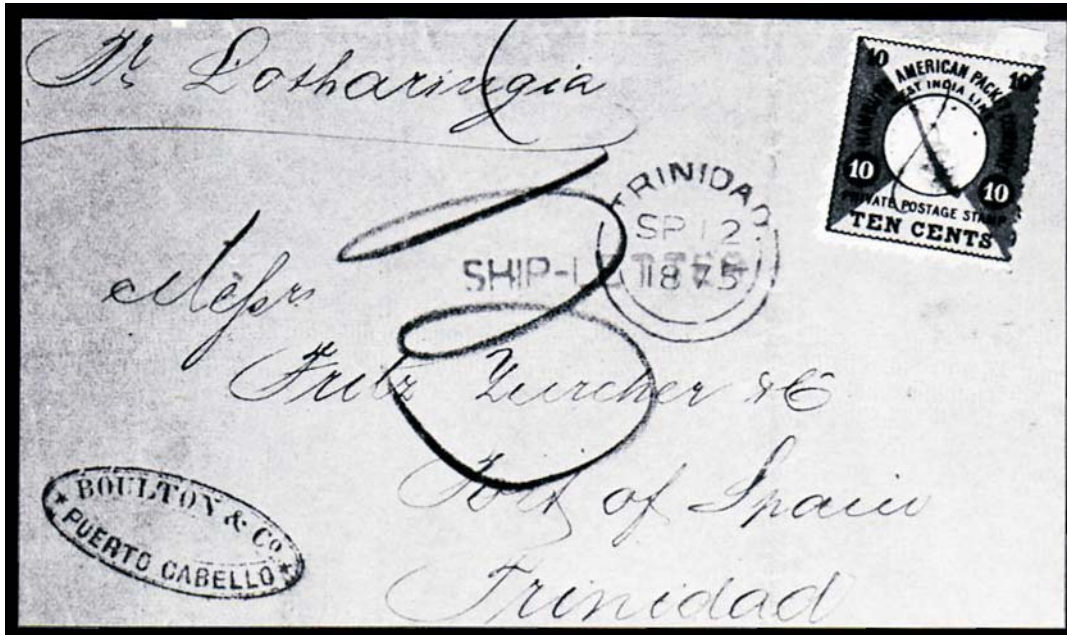 Pr Lotharingia
10 10
HAMBURG AMERICAN PACKET COMPANY
WEST INDIA LINE
10 10
PRIVATE POSTAGE STAMP
TEN CENTS
TRINIDAD
SP 12
1875
SHIP-LETTER
3
Messrs
Fritz Zurcher & C
Port of Spain
Trinidad
BOULTON & Co
PUERTO CABELLO